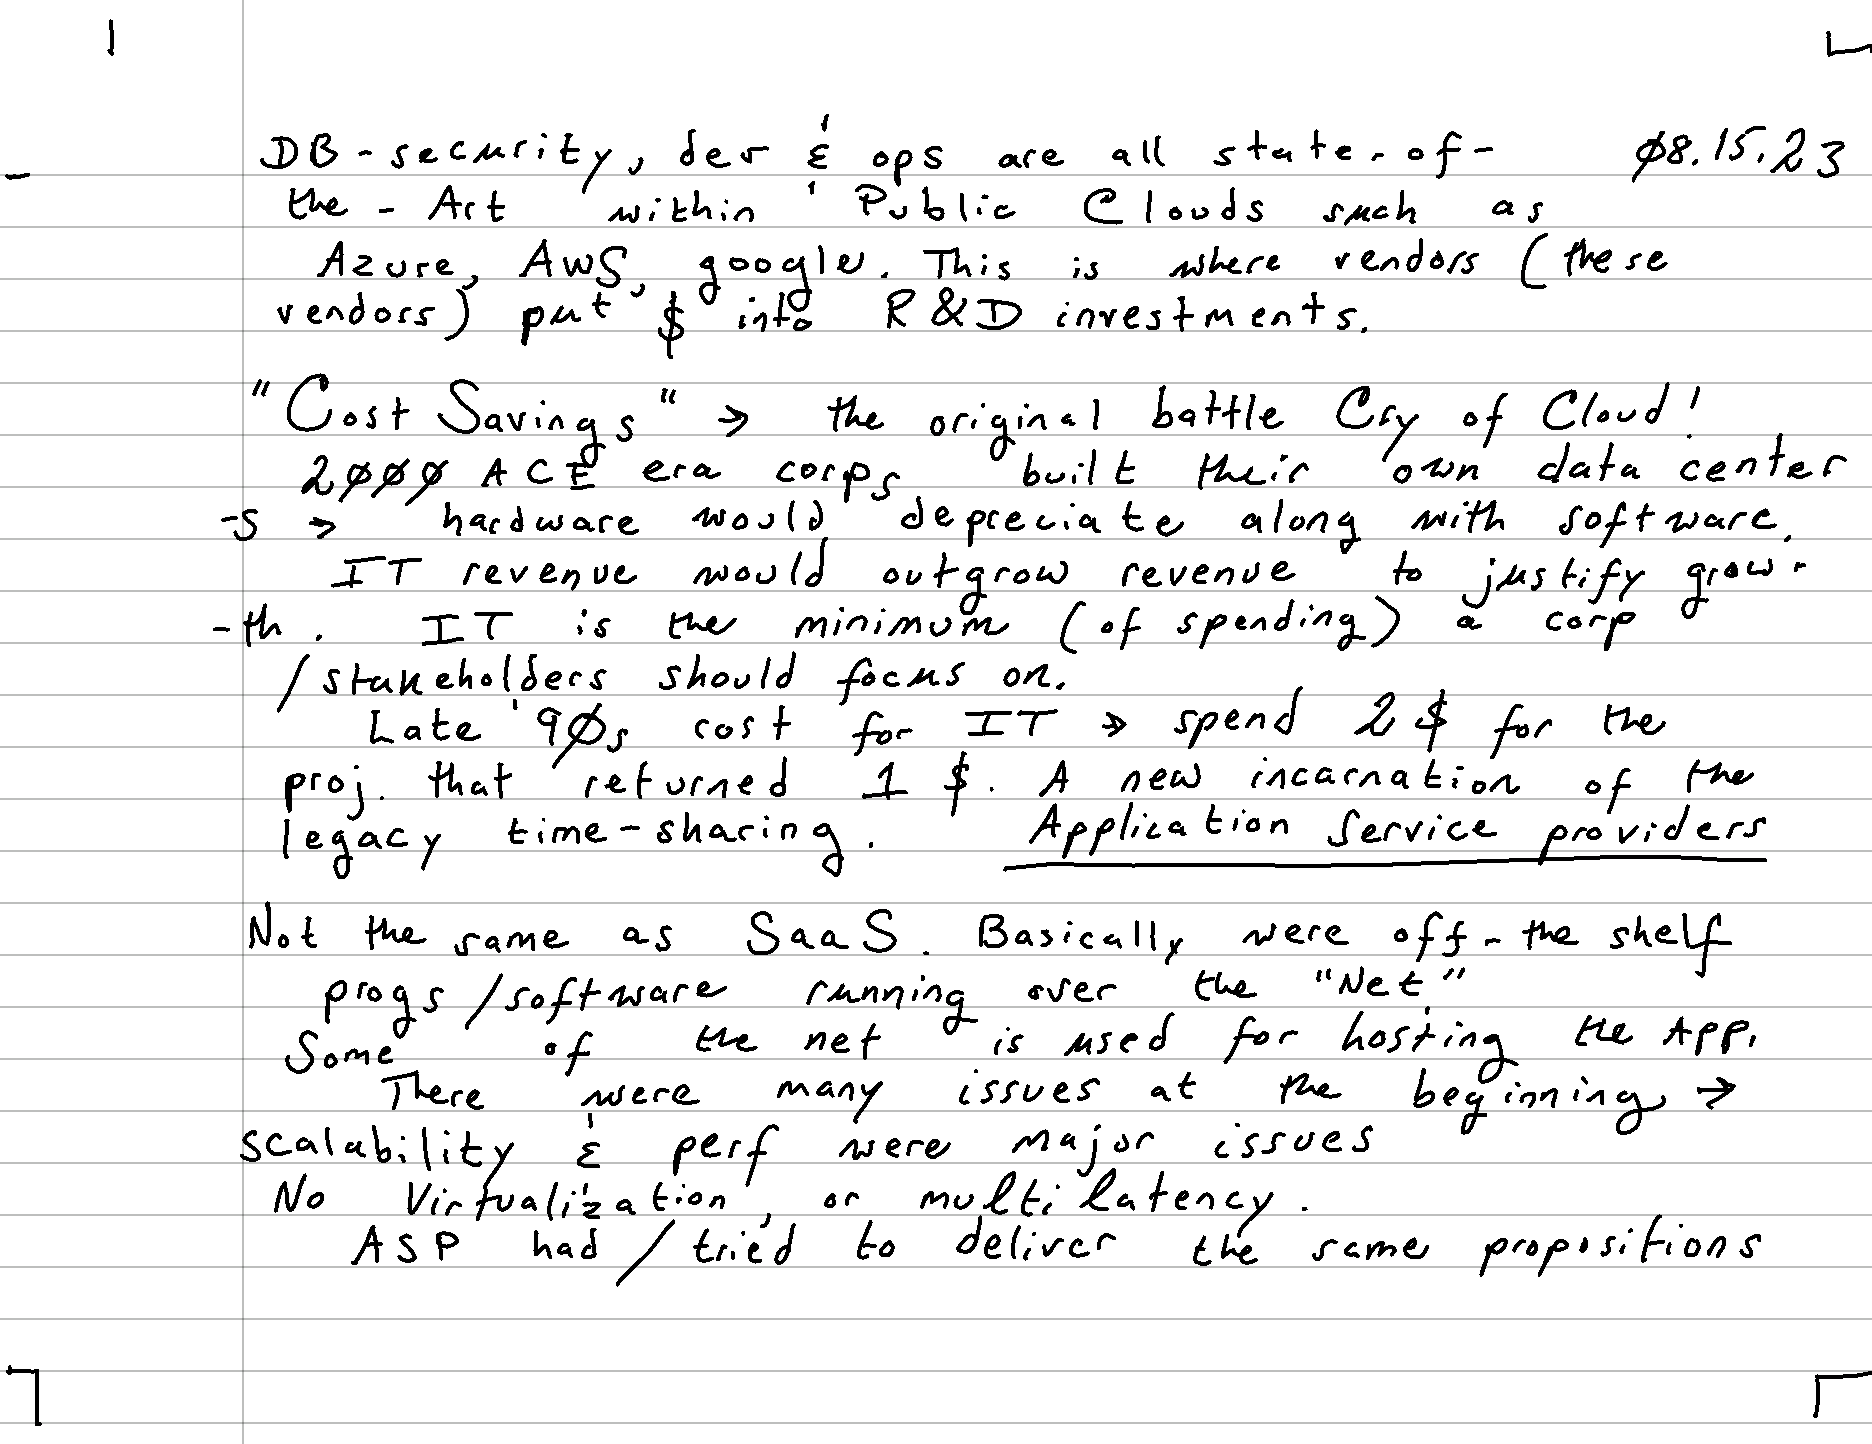 DB-security, dev & ops are all state-of- ø8.15.23
the-Art within Public Clouds such as
Azure, AWS, google. This is where vendors (these
vendors) put $ into R&D investments.
"Cost Savings" → the original battle Cry of Cloud!
2øøø ACE era corps built their own data center
-s → hardware would depreciate along with software.
IT revenue would outgrow revenue to justify grow-
-th. IT is the minimum (of spending) a corp
/stakeholders should focus on.
Late '9øs cost for IT → spend 2$ for the
proj. that returned 1 $. A new incarnation of the
legacy time-sharing. Application Service providers
Not the same as SaaS. Basically were off-the shelf
progs/software running over the "Net"
Some of the net is used for hosting the App.
There were many issues at the beginning →
scalability & perf were major issues
No Virtualization, or multi latency.
ASP had/tried to deliver the same propositions